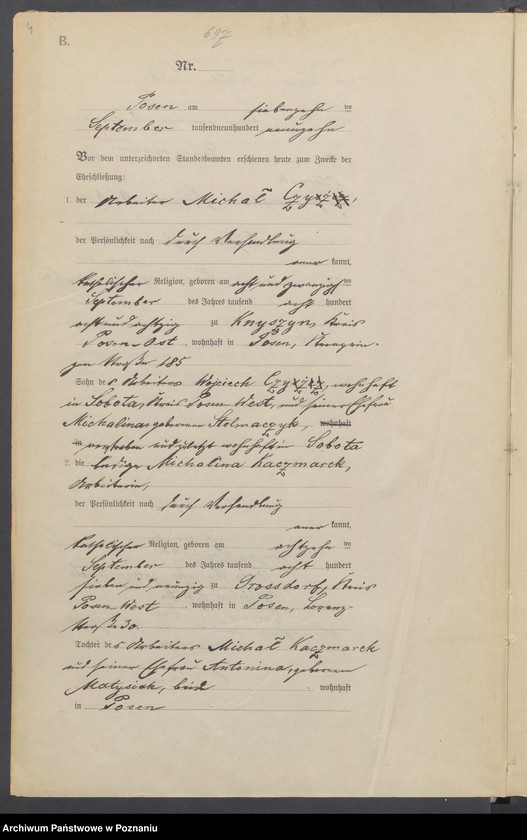 4
B.
697
Nr.
Posen am siebzehn ten
September tausendneunhundert neunzehn
Vor dem unterzeichneten Standesbeamten erschienen heute zum Zwecke der
Eheschließung:
1. der Arbeiter Michał
der Persönlichkeit nach durch Verhandlung
aner kannt,
katholischer Religion, geboren am acht und zwanzigsten
September des Jahres tausend acht hundert
acht und achtzig zu Knyszyn, Kreis
Posen-Ost, wohnhaft in Posen,
Straße 185
Sohn des Arbeiters Wojciech wohnhaft
in Sobota, Kreis Posen West, und seiner Ehefrau
Michalina, geborenen Stelmaczyk, wohnhaft
in verstorben und zuletzt wohnhaft in Sobota
2. die ledige Michalina Kaczmarek,
Arbeiterin,
der Persönlichkeit nach durch Verhandlung
aner kannt,
katholischer Religion, geboren am achtzehn ten
September des Jahres tausend acht hundert
sieben und neunzig zu Grossdorf, Kreis
Posen West, wohnhaft in Posen, Lorenz-
straße 30.
Tochter des Arbeiters Michał Kaczmarek
und seiner Ehefrau Antonina, geborenen
Matysiak, beide wohnhaft
in Posen
Archiwum Państwowe w Poznaniu